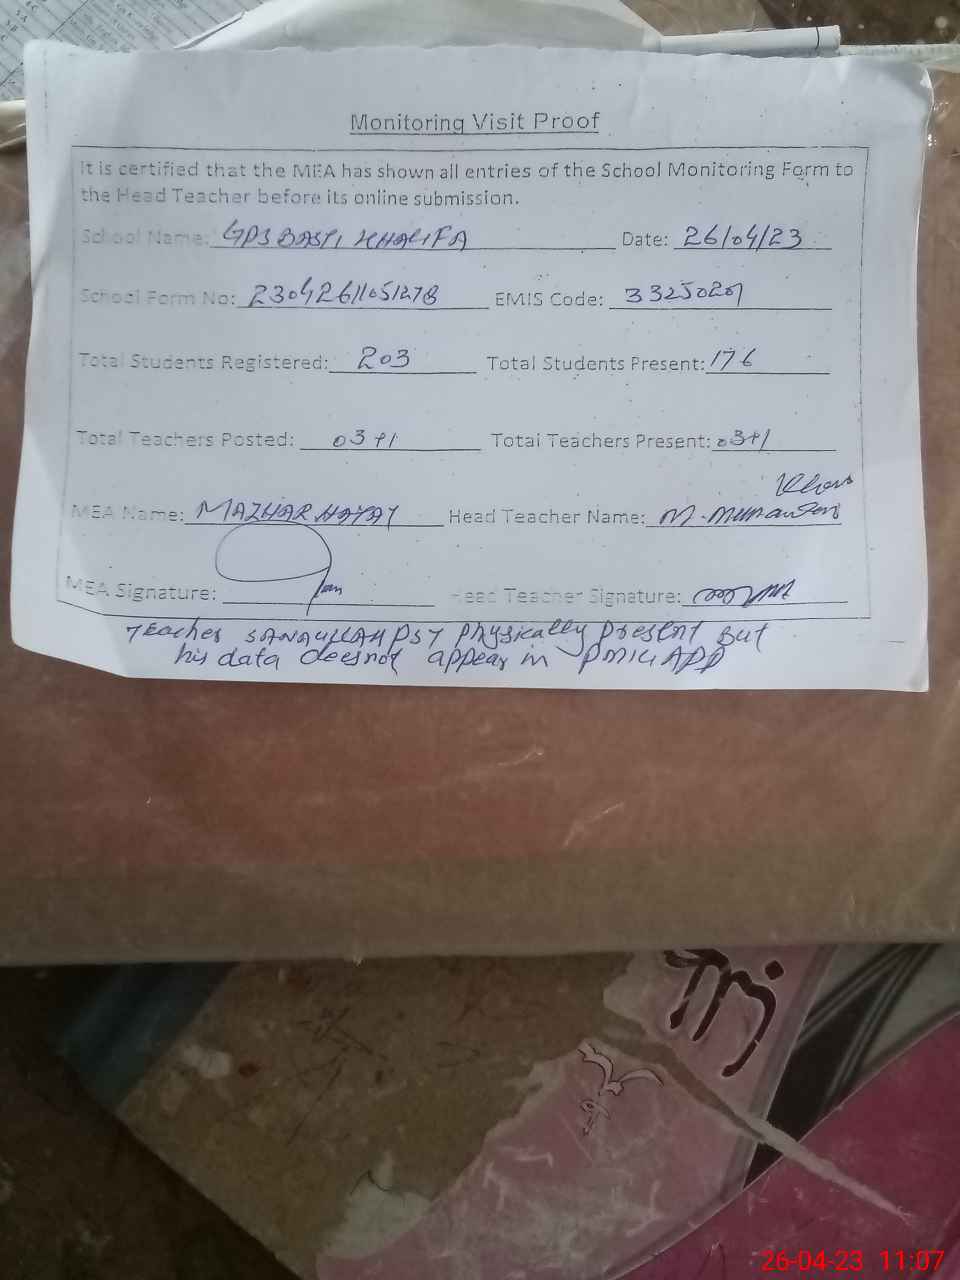 Monitoring Visit Proof
It is certified that the MEA has shown all entries of the School Monitoring Form to
the Head Teacher before its online submission.
School Name: GPS BASTI KHALIFA Date: 26/04/23
School Form No: 23042611051278 EMIS Code: 33250201
Total Students Registered: 203 Total Students Present: 176
Total Teachers Posted: 03+1 Total Teachers Present: 03+1
Khan
MEA Name: MAZHAR HAYAT Head Teacher Name: M.
MEA Signature: Head Teacher Signature:
Teacher SANAULLAH PST Physically Present But
his data doesnot appear in PMIU APP
26-04-23 11:07